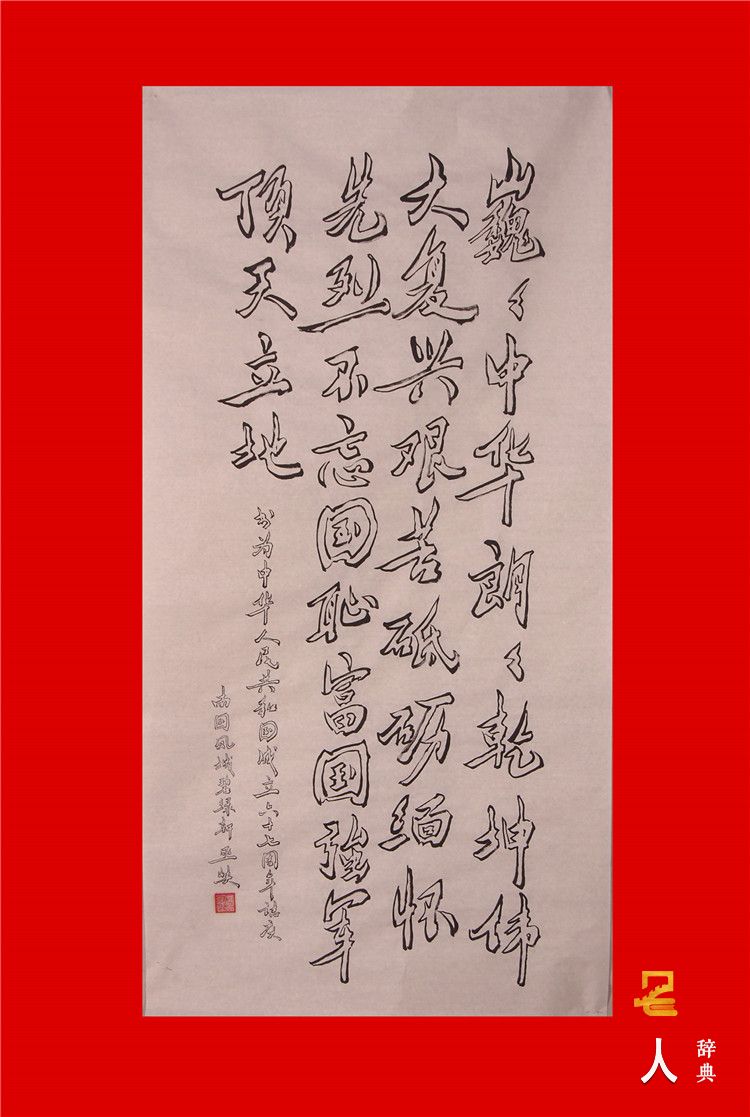 巍々中华朗々乾坤伟
大复兴艰苦砥砺缅怀
先烈不忘国耻富国強军
顶天立地
书为中华人民共和国成立六十七周年誌庆
南国凤城
人
辞典